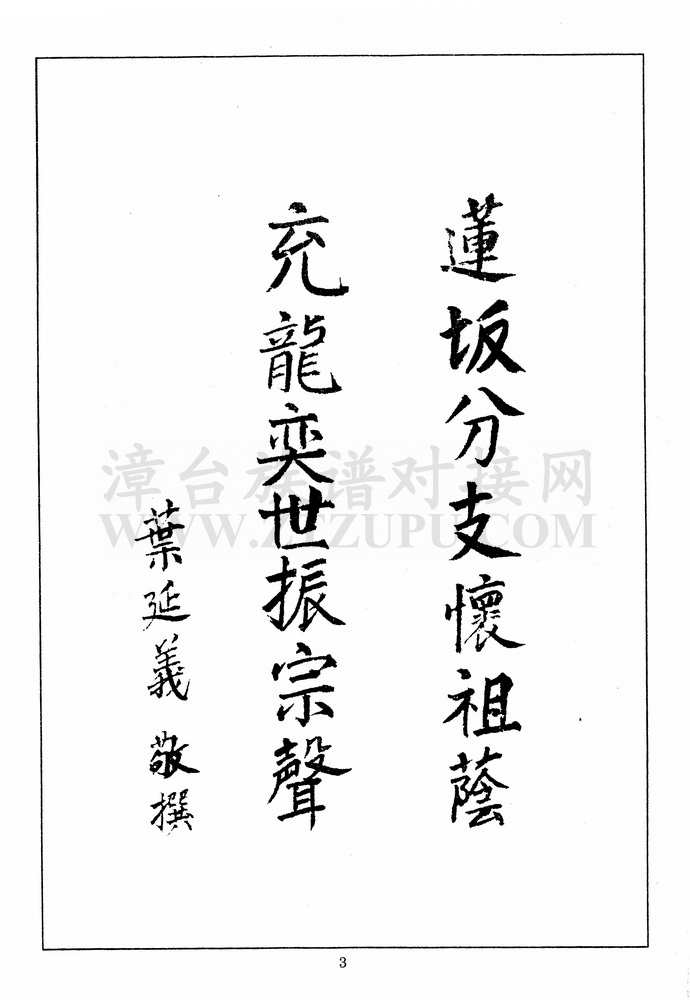 蓮坂分支懷祖蔭
充龍奕世振宗聲
葉延義 敬撰
漳台族谱对接网
WWW.ZTZUPU.COM
3